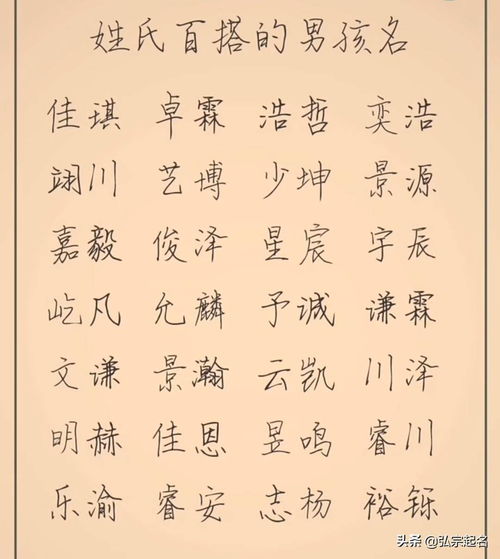 姓氏百搭的男孩名
佳琪 卓霖 浩哲 奕浩
翊川 艺博 少坤 景源
嘉毅 俊泽 星宸 宇辰
屹凡 允麟 予诚 谦霖
文谦 景瀚 云凯 川泽
明赫 佳恩 昱鸣 睿川
乐渝 睿安 志杨 裕铄
头条 @弘宗起名